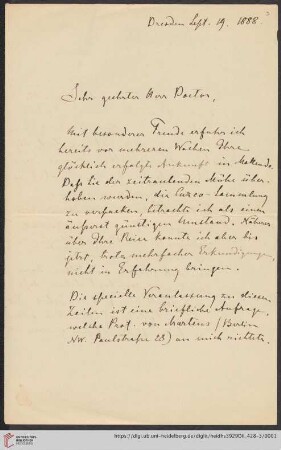 Dresden Sept. 19. 1888.
Sehr geehrter Herr Doctor,
Mit besonderer Freude erfuhr ich
bereits vor mehreren Wochen Ihre
glücklich erfolgte Ankunft in
Daß Sie der zeitraubenden Mühe über-
hoben wurden, die Cuzco-Sammlung
zu verpacken, betrachte ich als einen
äußerst günstigen Umstand. Näheres
über Ihre Reise konnte ich aber bis
jetzt, trotz mehrfacher Erkundigungen,
nicht in Erfahrung bringen.
Die specielle Veranlassung zu diesen
Zeilen ist eine briefliche Anfrage,
welche Prof. von Martens (Berlin
NW. Paulstraße 28) an mich richtete.
http://digi.ub.uni-heidelberg.de/diglit/heidhs3929IIK_428-3/0001